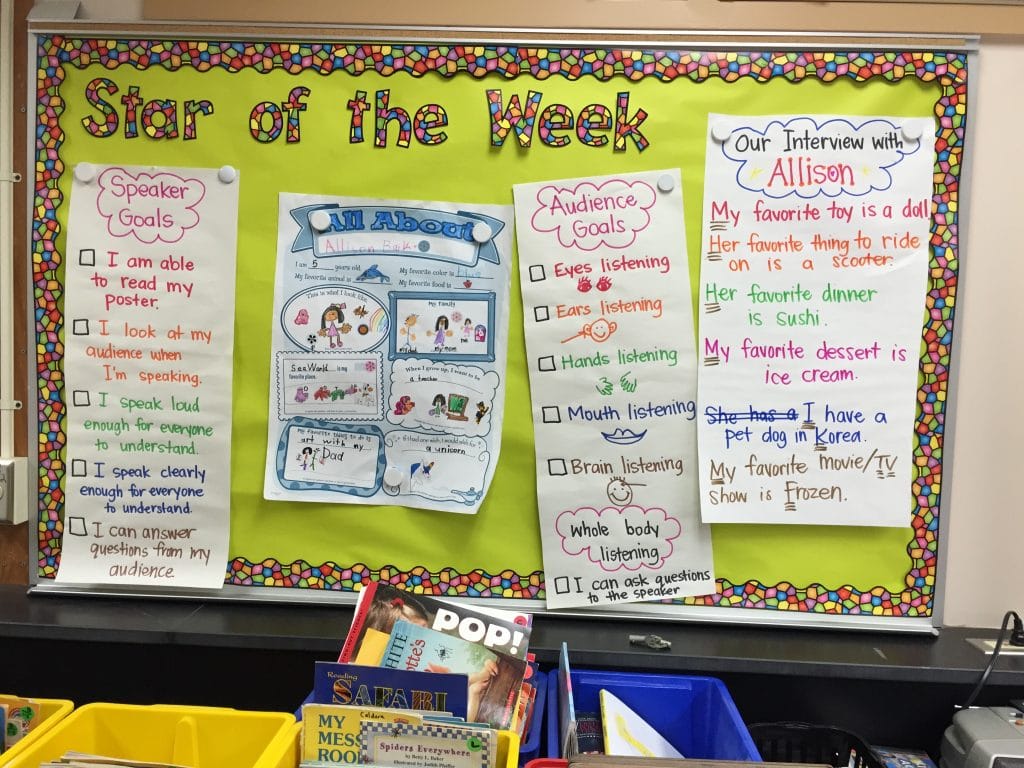 Star of the Week
Speaker
Goals
I am able
to read my
poster.
I look at my
audience when
I'm speaking.
I speak loud
enough for everyone
to understand.
I speak clearly
enough for everyone
to understand.
I can answer
questions from my
audience.
All About
Allison
I am 5 years old.
My favorite animal is
My favorite color is blue
My favorite food is
This is what I look like.
My Family
my dad
my mom
me
SeaWorld is my
favorite place.
When I grow up, I want to be
a teacher
My favorite thing to do is
art with my
Dad
If I had one wish, I would wish for
a unicorn
Audience
Goals
Eyes listening
Ears listening
Hands listening
Mouth listening
Brain listening
Whole body
listening
I can ask questions
to the speaker
Our Interview with
Allison
My favorite toy is a doll
Her favorite thing to ride
on is a scooter.
Her favorite dinner
is sushi.
My favorite dessert is
ice cream.
She has a I have a
pet dog in Korea.
My favorite movie/TV
show is Frozen.
POP!
Reading
SAFARI
Caldera
MY
MESS
ROOM
Spiders Everywhere
by Betty L. Baker
Illustrated by Judith